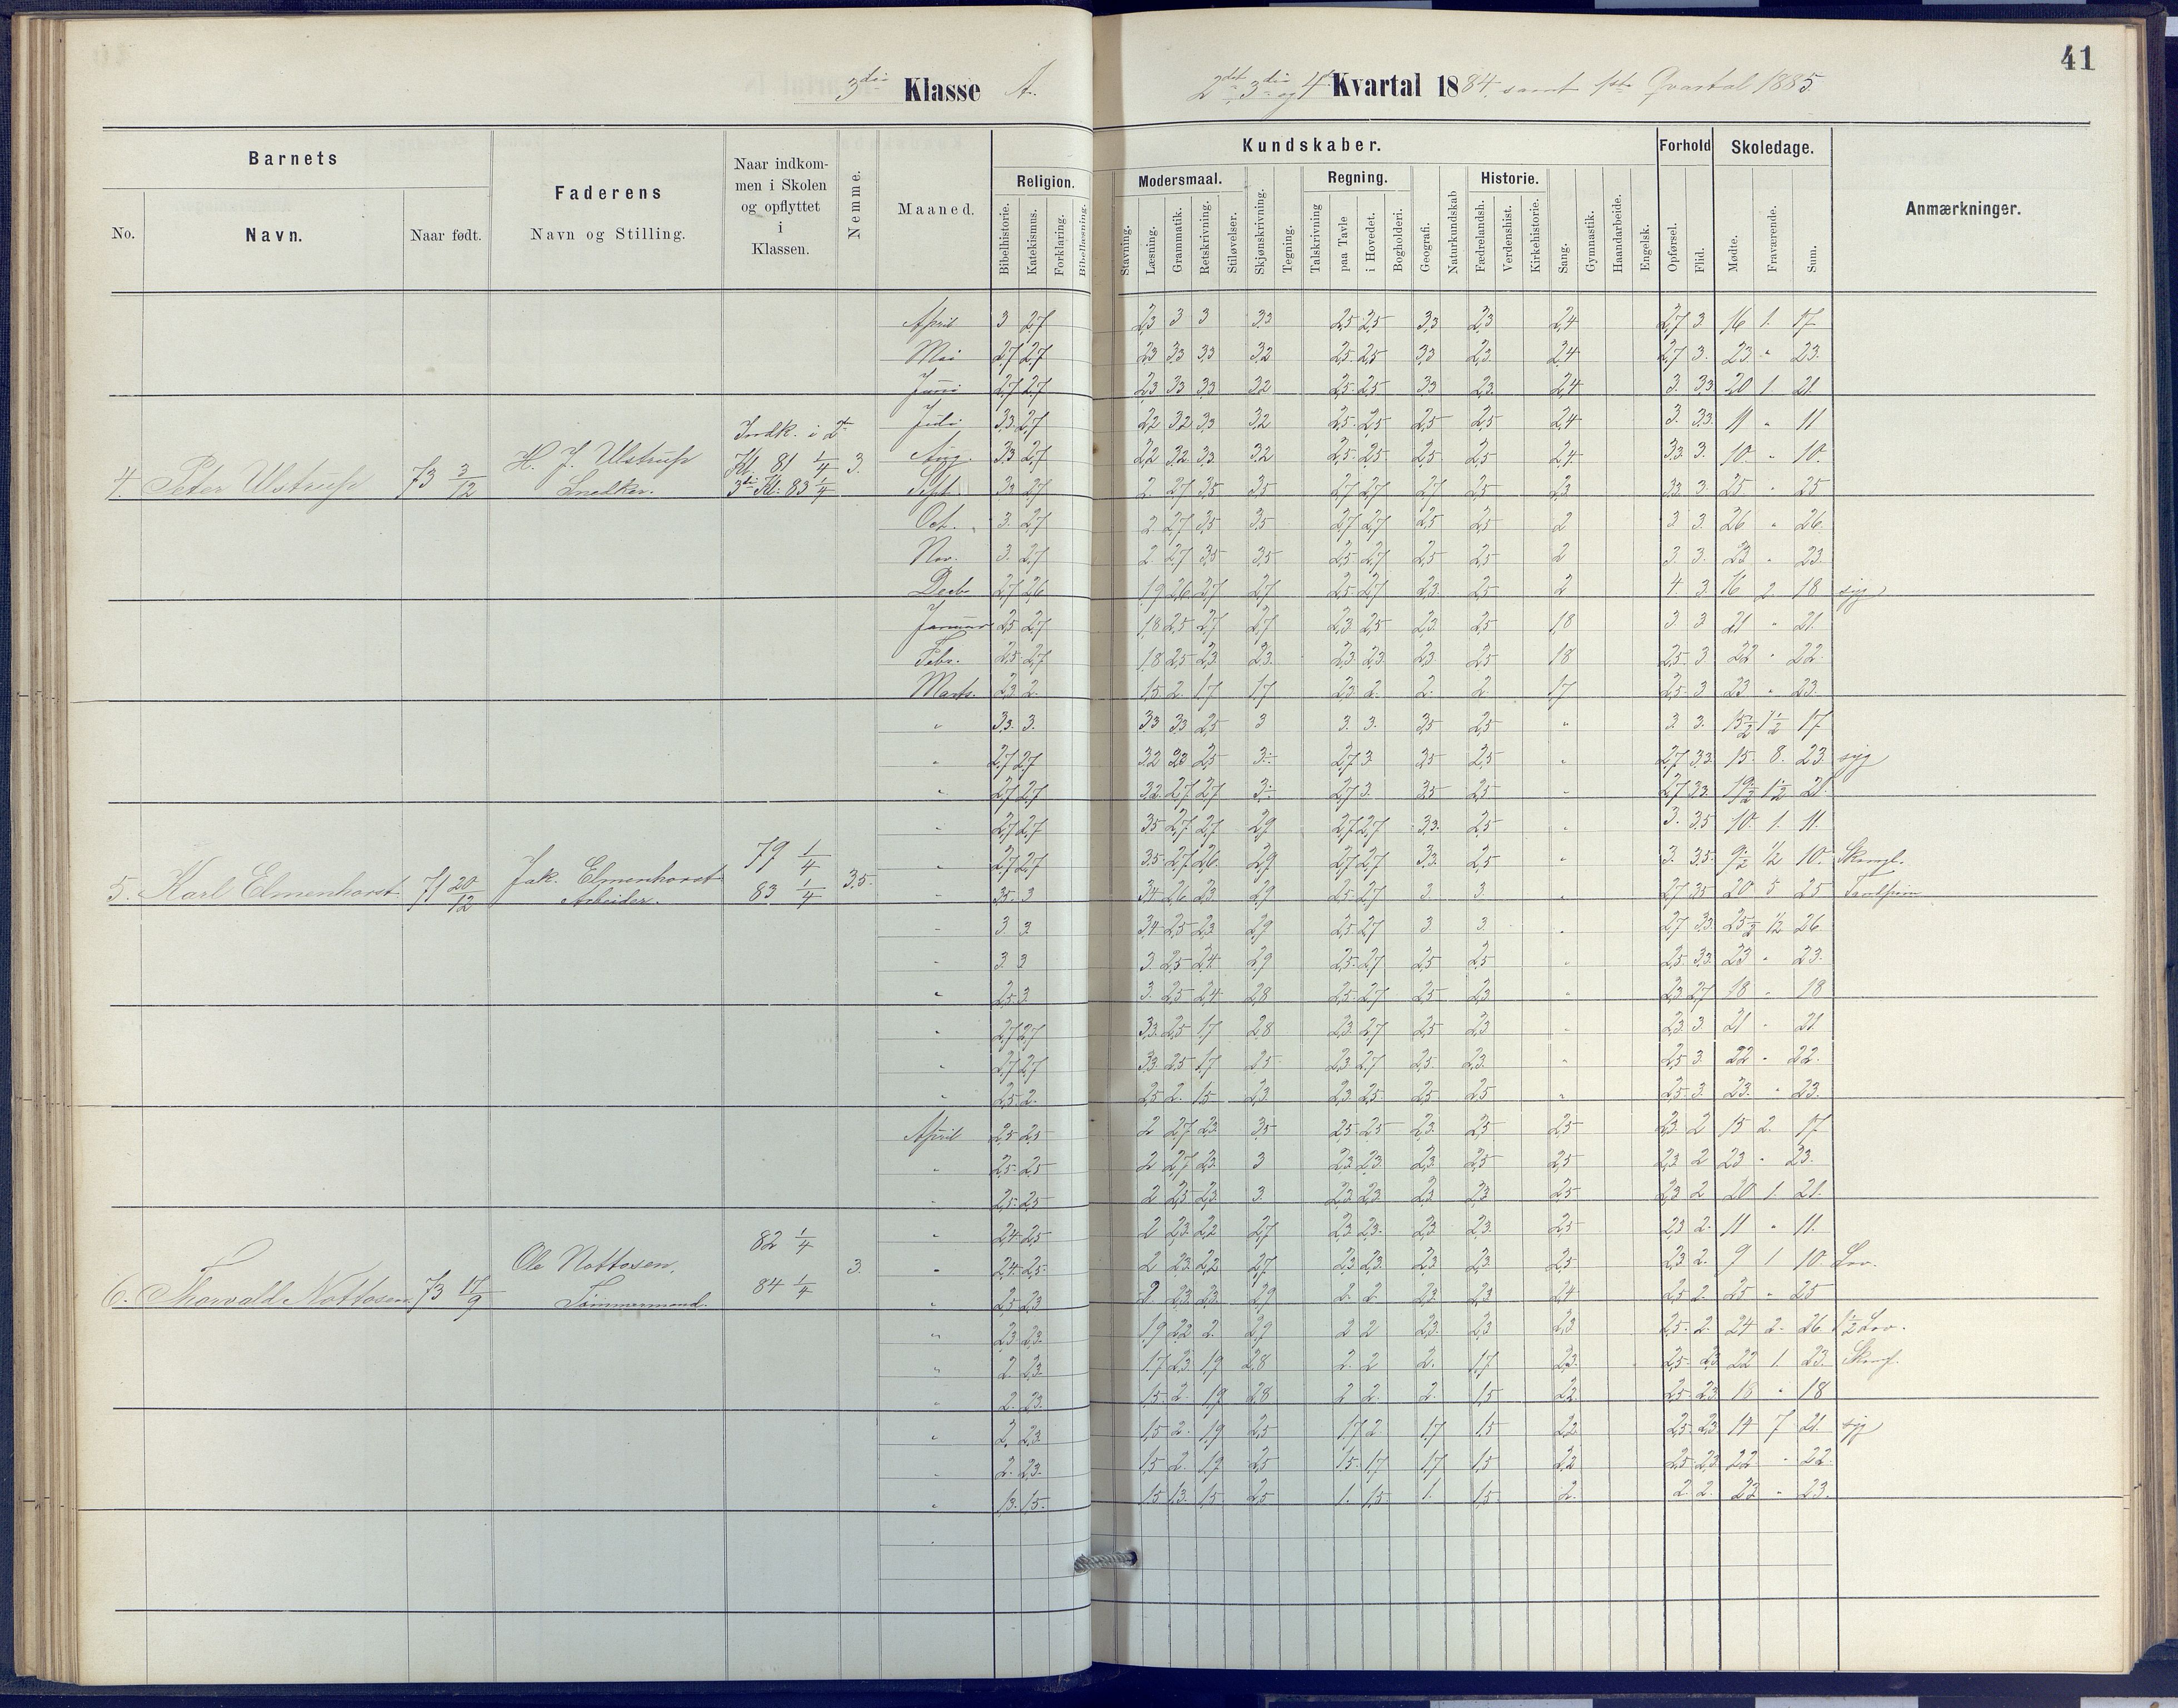 41
3die Klasse A.
2det, 3die og 4de Kvartal 1884, samt 1ste Qvartal 1885.
Barnets
Faderens
Navn og Stilling.
Naar indkom-
men i Skolen
og opflyttet
i
Klassen.
Nemme.
Maaned.
Kundskaber.
Forhold
Skoledage.
Anmærkninger.
No.
Navn.
Naar født.
Religion.
Modersmaal.
Regning.
Historie.
Bibelhistorie.
Katekismus.
Forklaring.
Bibellæsning.
Stavning.
Læsning.
Grammatik.
Retskrivning.
Stiløvelser.
Skjønskrivning.
Tegning.
Talskrivning
paa Tavle
i Hovedet.
Bogholderi.
Geografi.
Naturkundskab
Fædrelandsh.
Verdenshist.
Kirkehistorie.
Sang.
Gymnastik.
Haandarbeide.
Engelsk.
Opførsel.
Flid.
Mødte.
Fraværende.
Sum.
April 3 2,7 2,3 3 3 3,3 2,5 2,5 3,3 2,3 2,4 2,7 3. 16 1. 17
Mai 2,7 2,7 2,3 3,3 3,3 3,2 2,5 2,5 3,3 2,3 2,4 2,7 3. 23 " 23.
Juni 2,7 2,7 2,3 3,3 3,3 3,2 2,5 2,5 3,3 2,3 2,4 3. 3,3 20 1. 21.
Indk. i 2den Juli 3,3 2,7 2,2 3,2 3,3 3,2 2,5 2,5 2,5 2,5 2,4 3. 3,3 11 " 11
H. J. Ulstrup Kl. 81 1/4 3. Aug. 3,3 2,7 2,2 3,2 3,3 3,2 2,5 2,5 2,5 2,5 2,4 3,3 3. 10. " 10.
4. Peter Ulstrup 73 3/12 Snedker. 3die Kl. 83 1/4 Sept. 3,3 2,7 2. 2,7 3,5 3,5 2,7 2,7 2,7 2,5 2,3 3,3 3. 25 " 25
Oct. 3. 2,7 2 2,7 3,5 3,5 2,7 2,7 2,5 2,5 2 3 3. 26 " 26.
Nov. 3. 2,7 2. 2,7 3,5 3,5 2,5 2,7 2,5 2,5 2 3 3. 23 " 23.
Decbr 2,7 2,6 1,9 2,6 2,7 2,7 2,5 2,7 2,3 2,5 2 4. 3. 16 2 18 syg
Januar 2,5 2,7 1,8 2,5 2,7 2,7 2,3 2,5 2,3 2,5 1,8 3 3 21 " 21.
Febr. 2,5 2,7 1,8 2,5 2,3 2,3 2,3 2,3 2,3 2,5 1,8 2,5 3 22 " 22.
Marts. 2,3 2. 1,5 2. 1,7 1,7 2,3 2. 2. 2. 1,7 2,5 3 23 " 23.
" 3,3 3. 3,3 3,3 2,5 3 3. 3. 3,5 2,5 " 3. 3. 15 1/2 1 1/2 17
" 2,7 2,7 3,2 2,8 2,5 3. 2,7 3 3,5 2,5 " 2,7 3,3 15. 8. 23. syg
" 2,7 2,7 3,2 2,7 2,7 3. 2,7 3. 3,5 2,5 " 2,7 3,3 19 1/2 1 1/2 21
" 2,7 2,7 3,5 2,7 2,7 2,9 2,7 2,7 3,3 2,5 " 3. 3,5 10. 1. 11.
Jak. Elmenhorst 79 1/4 " 2,7 2,7 3,5 2,7 2,6 2,9 2,7 2,7 3,3 2,5 " 3. 3,5 9 1/2 1/2 10.
5. Karl Elmenhorst 71 20/12 Arbeider. 83 1/4 3,5. " 3,5 3 3,4 2,6 2,3 2,9 2,5 2,7 3 3 " 2,7 3,5 20 5 25
" 3. 3. 3,4 2,5 2,3 2,9 2,5 2,7 3 3. " 2,7 3,3 25 1/2 1/2 26.
" 3. 3 3. 2,5 2,4 2,9 2,5 2,7 2,5 2,5 " 2,5 3,3 23 " 23.
" 2,5 3. 3. 2,5 2,4 2,8 2,5 2,7 2,5 2,3 " 2,3 2,7 18 " 18
" 2,7 2,7 3,3 2,5 1,7 2,8 2,3 2,7 2,5 2,3 " 2,3 3. 21 " 21.
" 2,7 2,7 3,3 2,5 1,7 2,5 2,3 2,7 2,5 2,3 " 2,5 3. 22 " 22.
" 2,5 2. 2,5 2. 1,5 2,3 2,3 2,5 2,5 2,5 " 2,5 3. 23. " 23.
April 2,5 2,5 2 2,7 2,3 3,5 2,5 2,5 2,3 2,5 2,5 2,3 2 15 2. 17
" 2,5 2,5 2 2,7 2,3 3 2,3 2,3 2,3 2,5 2,5 2,3 2 23 " 23.
" 2,5 2,5 2 2,5 2,3 3. 2,3 2,3 2,3 2,3 2,5 2,3 2 20 1. 21.
82 1/4 " 2,4 2,5 2 2,3 2,2 2,7 2,3 2,3 2,3 2,3 2,5 2,3 2. 11 " 11.
Ole Nottosen, 3. " 2,4 2,5 2 2,3 2,2 2,7 2,3 2,3 2,3 2,3 2,5 2,3 2. 9 1 10. Lov.
6. Thorvald Nottosen. 73 17/9 Tømmermand. 84 1/4 " 2,5 2,3 2. 2,3 2,3 2,9 2. 2. 2,3 2,3 2,4 2,5 2. 25 " 25
" 2,3 2,3 1,9 2,2 2. 2,9 2 2 2,3 2,3 2,3 2,5 2. 24 2. 26 1 1/2 Lov.
" 2. 2,3 1,7 2,3 1,9 2,8 2. 2 2. 1,7 2,3 2,5 2,3 22 1. 23.
" 2. 2,3 1,5 2. 1,9 2,8 2 2. 2. 1,5 2,2 2,5 2,3 18 " 18
" 2, 2,3 1,5 2. 1,9 2,5 1,7 2. 1,7 1,5 2,2 2,5 2,3 14 7 21. syg
" 2. 2,3 1,5 2. 1,9 2,5 1,5 1,7 1,7 1,5 2,2 2,5 2,3 22 " 22.
" 1,3 1,5 1,5 1,3 1,5 2,5 1. 1,5 1. 1,5 2. 2. 2. 23 " 23.